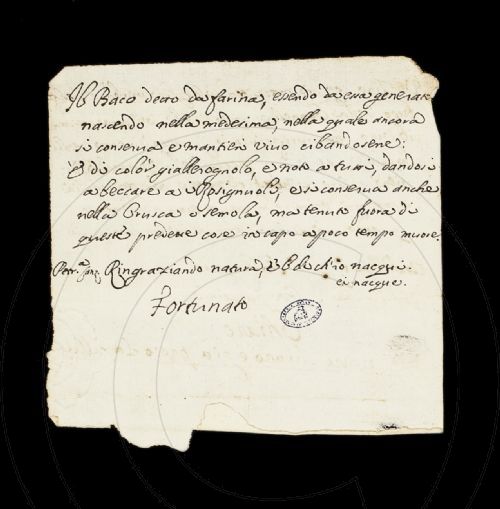 Il Baco detto da farina, essendo da essa generato
nascendo nella medesima, nella quale ancora
si conserva e mantien vivo cibandosene:
È di color giallognolo, e noto a tutti, dandosi
a beccare a i Rosignuoli, e si conserva anche
nella Crusca o semola, ma tenuto fuora di
queste predette cose in capo a poco tempo muore.
Petr.a Ringraziando natura, e'l dì ch'io nacqui.
ei nacque.
Fortunato